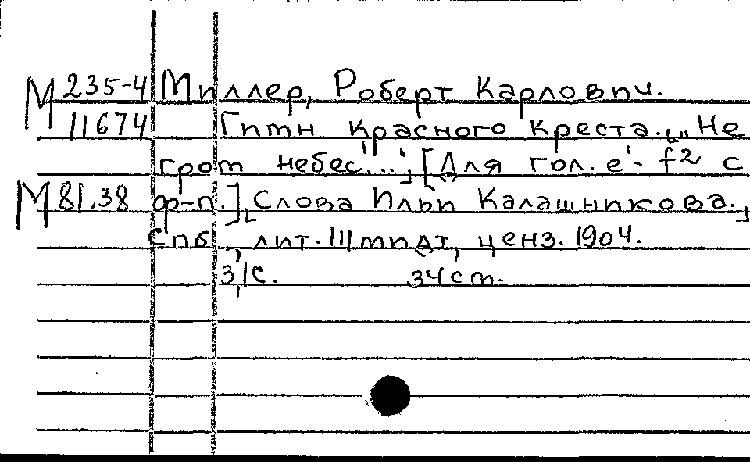 М 235-4 Миллер, Роберт Карлович.
11674 Гимн Красного Креста. „Не
гром небес...", [Для гол. e'- f² с
М 81.38 ф-п.], Слова Ильи Калашникова.,
Спб., лит. Шмидт, ценз. 1904.
3 с. 34 см.